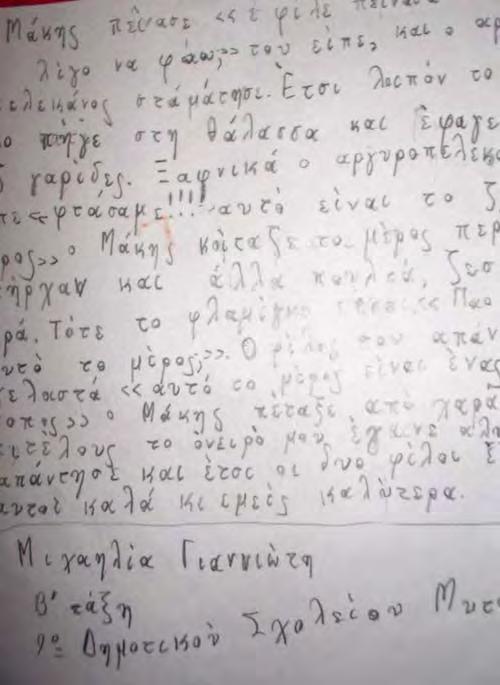 Μάκης πείνασε <<ε φίλε πεινάω
λίγο να φάω;<< του είπε, και ο αρ
ελεκάνος στάματησε. Έτσι λοιπόν το
ο πήγε στη θάλασσα και έφαγε
ς γαρίδες. Ξαφνικά ο αργυροπελεκ
τε >>φτάσαμε!!!! αυτό είναι το ζ
ρος<< ο Μάκης κοίταζε το μέρος περ
πήρχαν και άλλα πουλιά,
ρά. Τότε το φλαμίγκο << Πο
αυτό το μέρος;<<. Ο φίλος του απάν
<<αυτό το μέρος είναι ένας
<< ο Μάκης πέταξε από χαρά
επιτέλους το όνειρό μου έγινε αλη
απάντησε και έτσι οι δυο φίλοι έ
αυτοί καλά κι εμείς καλήτερα.
Μιχαηλία Γιαννιώτη
Β' τάξη
9ο Δημοτικού Σχολείου Μυτι